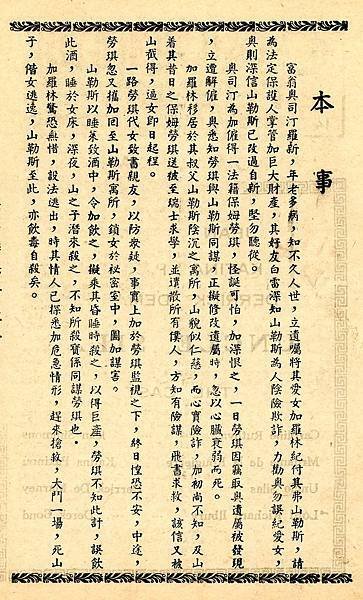 本事
富翁奧司汀羅新，年老多病，知不久人世，立遺囑將其愛女加羅林紀付其弟山勒斯，請
為法定保護人掌管加巨大財產，其好友白雷深知山勒斯為人陰險欺詐，力勸奧勿誤紀愛女，
奧則深信山勒斯已改過自新，堅勿聽從。
奧司汀為加僱得一法籍保姆勞琪，怪誕可怕，加深恨之，一日勞琪因竊取奧遺屬被發現
，立遭解僱，奧悉知勞琪與山勒斯同謀，正擬修改遺屬時，忽以心臟衰弱而死。
加羅林移居於其叔父山勒斯陰沉之寓所，山貌似仁慈，而心實險詐，加初尚不知，及山
著其昔日之保姆勞琪送彼至瑞士求學，並遣散所有僕人，方知有險謀，飛書求救，該信又被
山截得，逼女即日起程。
一路勞琪代女致書親友，以防眾疑，事實上加於勞琪監視之下，終日惶恐不安，中途，
勞琪忽又攜加回至山勒斯寓所，鎖女於秘密室中，圖加謀害。
山勒斯以睡藥致酒中，令加飲之，擬乘其昏睡時殺之，以得巨產，勞琪不知此計，誤飲
此酒，睡於女床，深夜，山之子潛來殺之，不知所殺實係同謀勞琪也。
加羅林驚恐無措，設法逃出，時其情人已探悉加危急情形，趕來搶救，大鬥一場，死山
子，偕女逃逸，山勒斯至此，亦飲毒自殺矣。